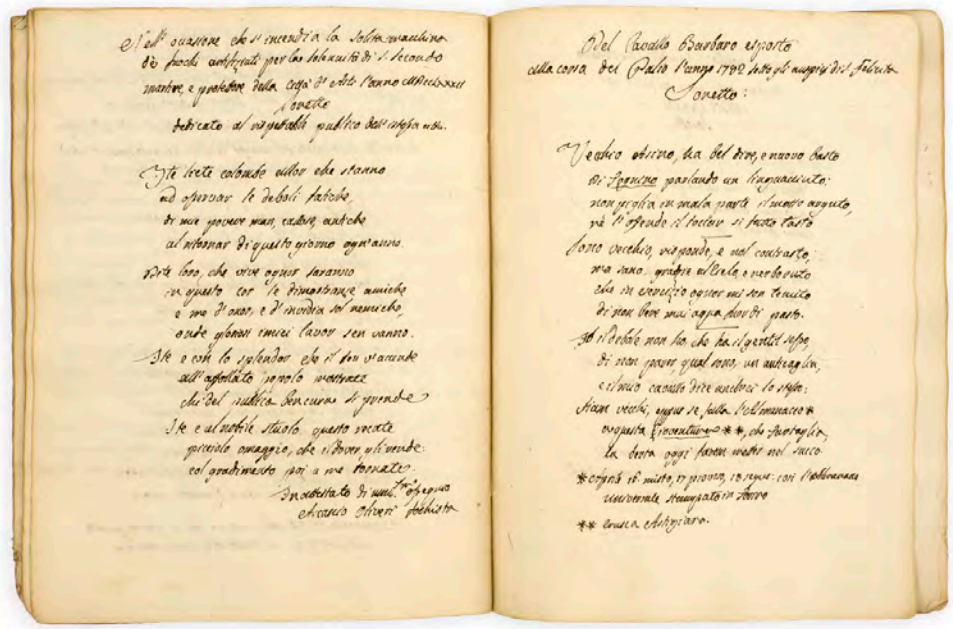 Nell' occasione che s' incendia la solita macchina
de' fuochi artifiziati per la solennità di S. Secondo
martire, e protettore della Città d' Asti l'anno MDCCLXXXII
Sonetto
dedicato al rispettabile publico dell' istessa città.
Ite liete colombe allor che stanno
ad osservar le deboli fatiche,
di mie povere man, callose, antiche
al ritornar di questo giorno ogn'anno.
Dite loro, che vive ognor saranno
in questo cor le dimostranze amiche
e me d' onor, e d' invidia sol nemiche,
onde gloriosi i miei lavor sen vanno.
Ite e con lo splendor che il sen v'accende
all' affollato popolo mostrate
chi del publico ben cura si prende
Ite e al nobile stuolo questo recate
picciolo omaggio, che il dover gli rende:
col gradimento poi a me tornate.
In attestato di ossequio
Ascanio Oliveri fochista
Del Cavallo Barbaro esposto
alla corsa del Palio l'anno 1782 sotto gli auspizi di S. Felicita
Sonetto:
Vecchio Asino, ha bel dire, e nuovo basto
di parlando un linguacciuto:
non piglia in mala parte il motto arguto,
né s' offende il toccar sì fatto tasto
Sono vecchio, risponde, e nol contrasto,
ma sano, grazie al Cielo, e nerboruto
che in esercizio ognor mi son tenuto
di non bere mai acqua fuor di pasto.
Io il debole non ho, che ha il gentil sesso,
di non parer, qual sono, un anticaglia,
e il mio cavallo dice anch'ei lo stesso:
Siam vecchi, eppur se falla l'Almanacco *
**, che
la festa oggi farem metter nel sacco
* Aprile 16 misto, 17 piovoso, 18 segue: così l'Almanacco
universale stampato in Torino
** Astigiana.